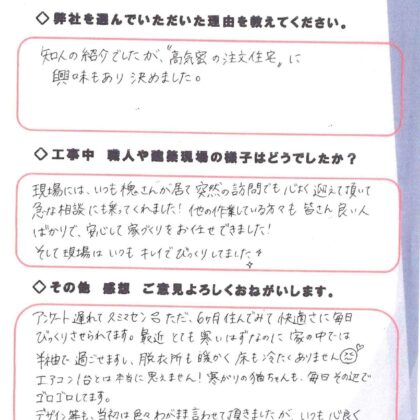 ◇弊社を選んでいただいた理由を教えてください。
知人の紹介でしたが、"高気密の注文住宅"に
興味もあり 決めました。
◇工事中 職人や建築現場の様子はどうでしたか？
現場には、いつも 槐さんが居て 突然の訪問でも 心よく 迎えて頂いて
急な相談にも乗ってくれました! 他の作業している方々も 皆さん 良い人
ばかりで、安心して 家づくりをお任せできました!
そして 現場は いつも キレイで びっくりしました
◇その他 感想 ご意見よろしくおねがいします。
アンケート 遅れて スミマセン ただ、6ヶ月住んでみて 快適さに毎日
びっくりさせられてます。最近 とても 寒いはずなのに 家の中では
半袖で 過ごせますし、脱衣所も 暖かく 床も冷たくありません
エアコン1台とは本当に思えません! 寒がりの猫ちゃんも、毎日その辺で
ゴロゴロしてます。
デザイン等も、当初は色々わがまま言わせて頂きましたが、いつも心良く